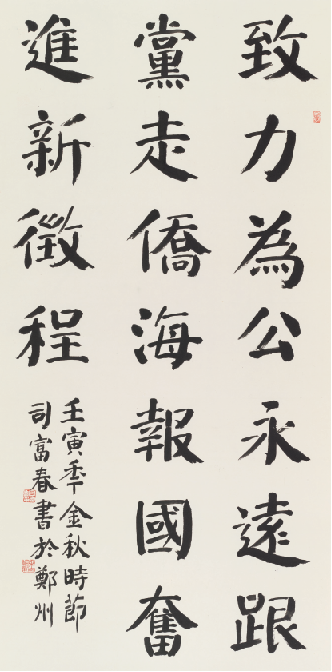 致力為公永遠跟
黨走僑海報國奮
進新徵程
壬寅季金秋時節
司富春書於鄭州